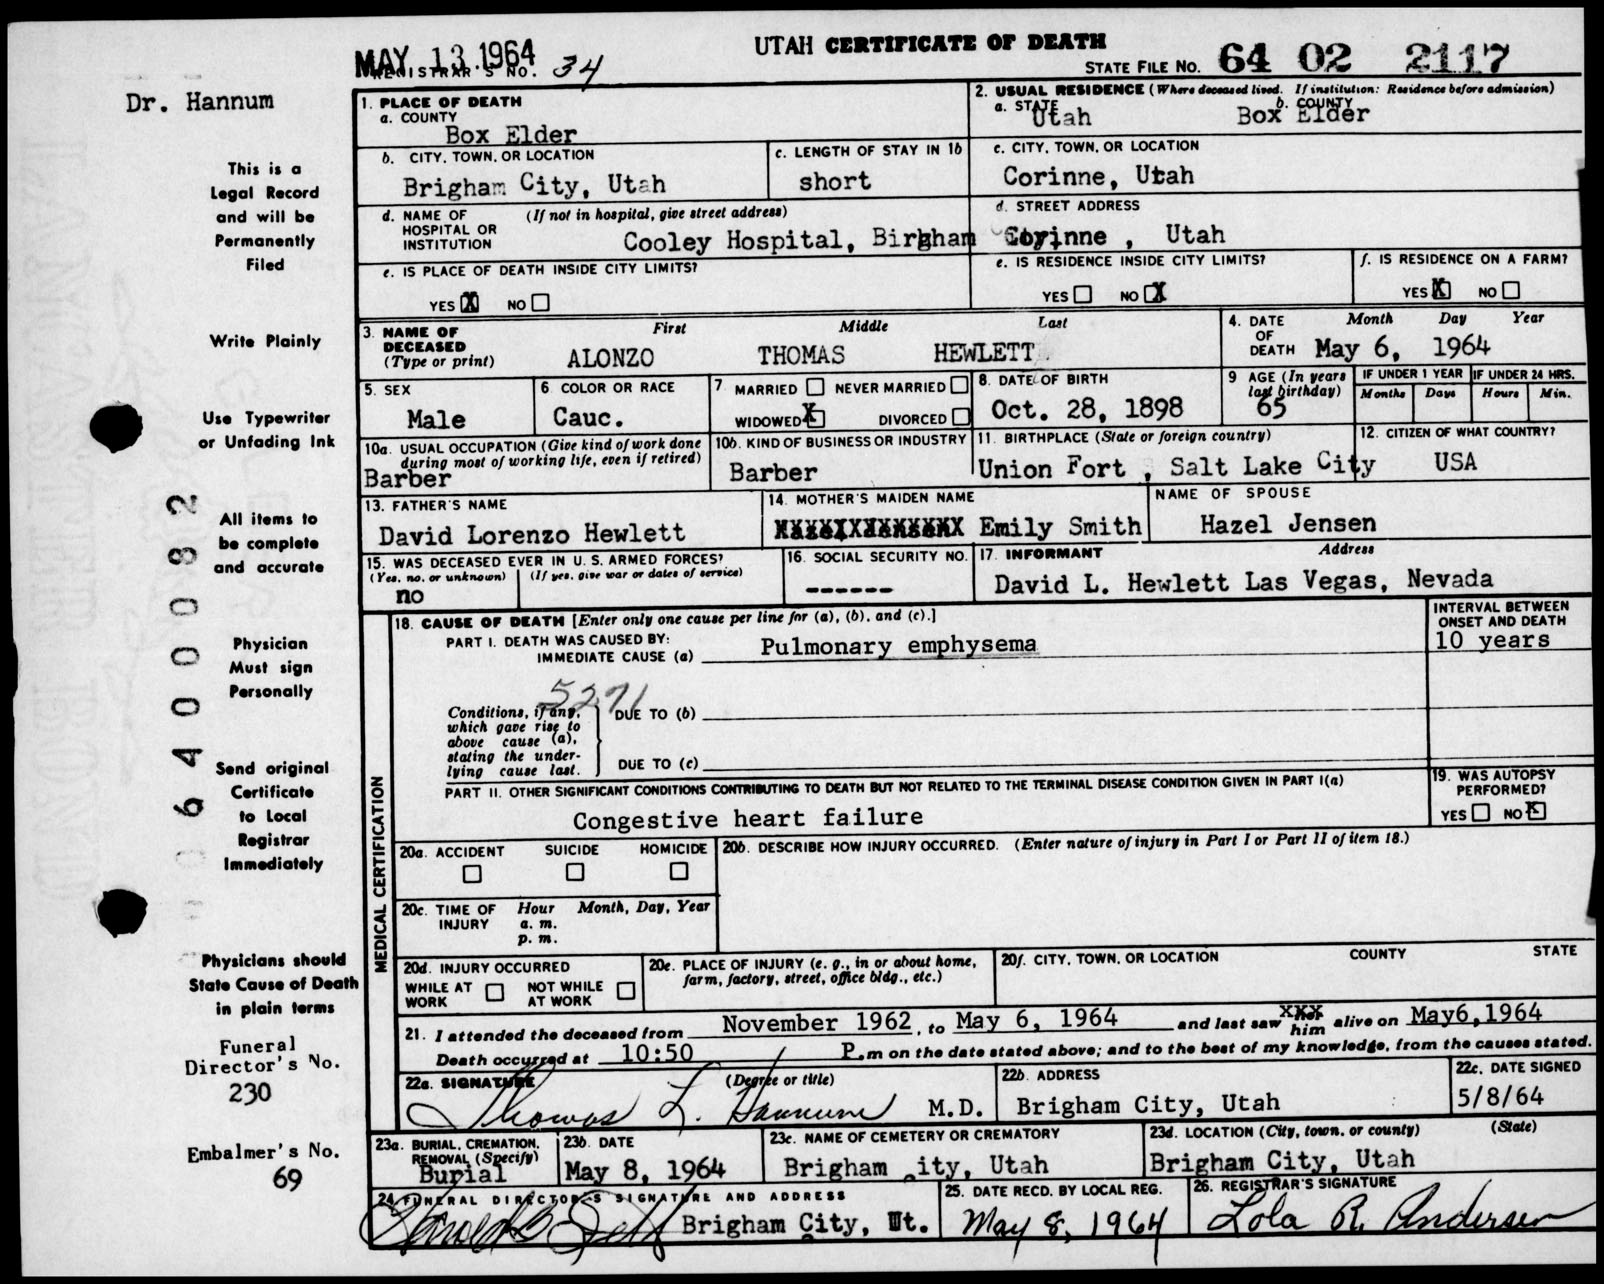 MAY 13 1964
UTAH CERTIFICATE OF DEATH
REGISTRAR'S NO. 34
STATE FILE NO. 64 02 2117
Dr. Hannum
This is a
Legal Record
and will be
Permanently
Filed
Write Plainly
Use Typewriter
or Unfading Ink
All items to
be complete
and accurate
Physician
Must sign
Personally
Send original
Certificate
to Local
Registrar
Immediately
Physicians should
State Cause of Death
in plain terms
Funeral
Director's No.
230
Embalmer's No.
69
06400082
1. PLACE OF DEATH
a. COUNTY
Box Elder
2. USUAL RESIDENCE (Where deceased lived. If institution: Residence before admission)
a. STATE b. COUNTY
Utah Box Elder
b. CITY, TOWN, OR LOCATION
Brigham City, Utah
c. LENGTH OF STAY IN 1b
short
c. CITY, TOWN, OR LOCATION
Corinne, Utah
d. NAME OF HOSPITAL OR INSTITUTION (If not in hospital, give street address)
Cooley Hospital, Birgham City,
d. STREET ADDRESS
Corinne , Utah
e. IS PLACE OF DEATH INSIDE CITY LIMITS?
YES X NO
e. IS RESIDENCE INSIDE CITY LIMITS?
YES NO X
f. IS RESIDENCE ON A FARM?
YES X NO
3. NAME OF DECEASED (Type or print)
First Middle Last
ALONZO THOMAS HEWLETT
4. DATE OF DEATH Month Day Year
May 6, 1964
5. SEX
Male
6 COLOR OR RACE
Cauc.
7 MARRIED NEVER MARRIED
WIDOWED X DIVORCED
8. DATE OF BIRTH
Oct. 28, 1898
9 AGE (In years last birthday)
65
IF UNDER 1 YEAR IF UNDER 24 HRS.
Months Days Hours Min.
10a. USUAL OCCUPATION (Give kind of work done during most of working life, even if retired)
Barber
10b. KIND OF BUSINESS OR INDUSTRY
Barber
11. BIRTHPLACE (State or foreign country)
Union Fort , Salt Lake City
12. CITIZEN OF WHAT COUNTRY?
USA
13. FATHER'S NAME
David Lorenzo Hewlett
14. MOTHER'S MAIDEN NAME
Emily Smith
NAME OF SPOUSE
Hazel Jensen
15. WAS DECEASED EVER IN U. S. ARMED FORCES?
(Yes, no, or unknown) (If yes, give war or dates of service)
no
16. SOCIAL SECURITY NO.
------
17. INFORMANT Address
David L. Hewlett Las Vegas, Nevada
MEDICAL CERTIFICATION
18. CAUSE OF DEATH [Enter only one cause per line for (a), (b), and (c).]
INTERVAL BETWEEN ONSET AND DEATH
PART I. DEATH WAS CAUSED BY:
IMMEDIATE CAUSE (a) Pulmonary emphysema
10 years
5271
Conditions, if any, which gave rise to above cause (a), stating the underlying cause last.
DUE TO (b)
DUE TO (c)
PART II. OTHER SIGNIFICANT CONDITIONS CONTRIBUTING TO DEATH BUT NOT RELATED TO THE TERMINAL DISEASE CONDITION GIVEN IN PART I(a)
Congestive heart failure
19. WAS AUTOPSY PERFORMED?
YES NO X
20a. ACCIDENT SUICIDE HOMICIDE
20b. DESCRIBE HOW INJURY OCCURRED. (Enter nature of injury in Part I or Part II of item 18.)
20c. TIME OF INJURY Hour Month, Day, Year
a. m.
p. m.
20d. INJURY OCCURRED
WHILE AT WORK NOT WHILE AT WORK
20e. PLACE OF INJURY (e. g., in or about home, farm, factory, street, office bldg., etc.)
20f. CITY, TOWN, OR LOCATION COUNTY STATE
21. I attended the deceased from November 1962, to May 6, 1964 and last saw him alive on May6,1964
Death occurred at 10:50 P.m on the date stated above; and to the best of my knowledge, from the causes stated.
22a. SIGNATURE (Degree or title)
Thomas L. Hannum M.D.
22b. ADDRESS
Brigham City, Utah
22c. DATE SIGNED
5/8/64
23a. BURIAL, CREMATION, REMOVAL (Specify)
Burial
23b. DATE
May 8, 1964
23c. NAME OF CEMETERY OR CREMATORY
Brigham ity, Utah
23d. LOCATION (City, town, or county) (State)
Brigham City, Utah
24 FUNERAL DIRECTOR'S SIGNATURE AND ADDRESS
Brigham City, Ut.
25. DATE RECD. BY LOCAL REG.
May 8, 1964
26. REGISTRAR'S SIGNATURE
Lola R. Andersen